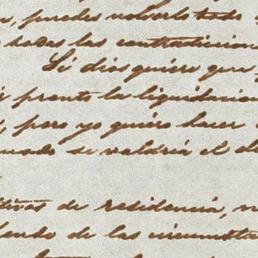 , puedes volverlo todo
todas las contradiccion
Si dios quiere que
pronto la liquidacion
, pero yo quiero hacer
se valdria el
de residencia, n
de las circunsta